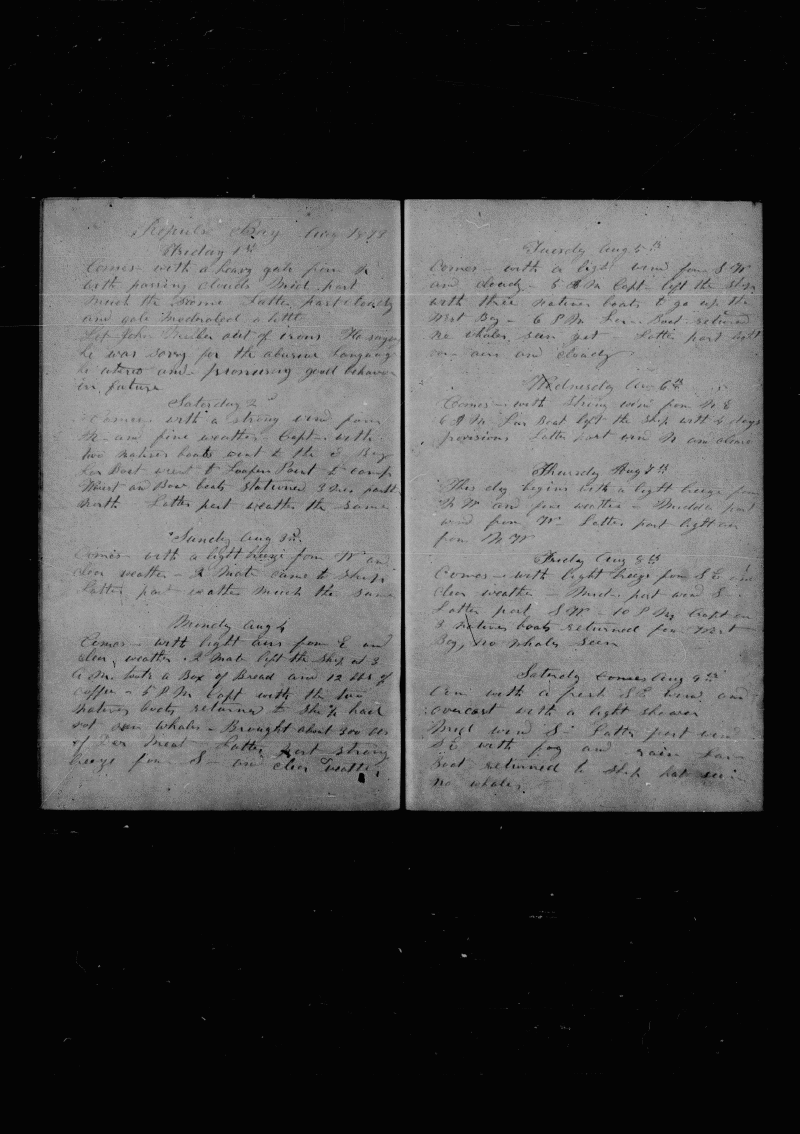 Repulse Bay Aug 1879
Friday 1st
Comes with a heavy gale from N
with passing clouds Mid part
much the same Latter part cloudy
and gale moderated a little
Let John out of irons He says
he was sorry for the abusive language
he uttered and promising good behavior
in future
Saturday 2d
Comes with a strong wind from
N and fine weather Capt with
two natives boats went to the E Bay
Lar Boat went to Point to camp
Waist and Bow boats stationed 3 miles
North Latter part weather the same
Sunday Aug 3d
Comes with a light breeze from W and
clear weather 2 Mate came to ship
Latter part weather much the same
Monday Aug 4
Comes with light airs from E and
clear weather 2 Mate left the ship at 3
A.M. with a Box of Bread and 12 lbs of
coffee 5 P M Capt with the two
natives boats returned to ship had
not seen whales Brought about 300 lbs
of Deer Meat Latter part strong
breeze from S and clear weather
Tuesdy Aug 5th
Comes with a light wind from S W
and cloudy 5 A M Capt left the ship
with three natives boats to go up the
West Bay 6 P M Lar Boat returned
no whales seen yet Latter part light
airs and cloudy
Wednesday Aug 6th
Comes with strong wind from N E
6 A M Lar Boat left the ship with 4 days
provisions Latter part wind N and clear
Thursday Aug 7th
This day begins with a light breeze from
N W and fine weather Middle part
wind from W Latter part light air
from N W
Friday Aug 8th
Comes with light breeze from S E and
clear weather Mid part wind S
Latter part S W 10 P M Capt and
3 natives boats returned from West
Bay, no whales seen
Saturdy Comes Aug 9th
Com with a fresh S E wind and
overcast with a light shower
Midl wind S Latter part wind
S E with fog and rain Lar
Boat returned to ship had seen
no whales